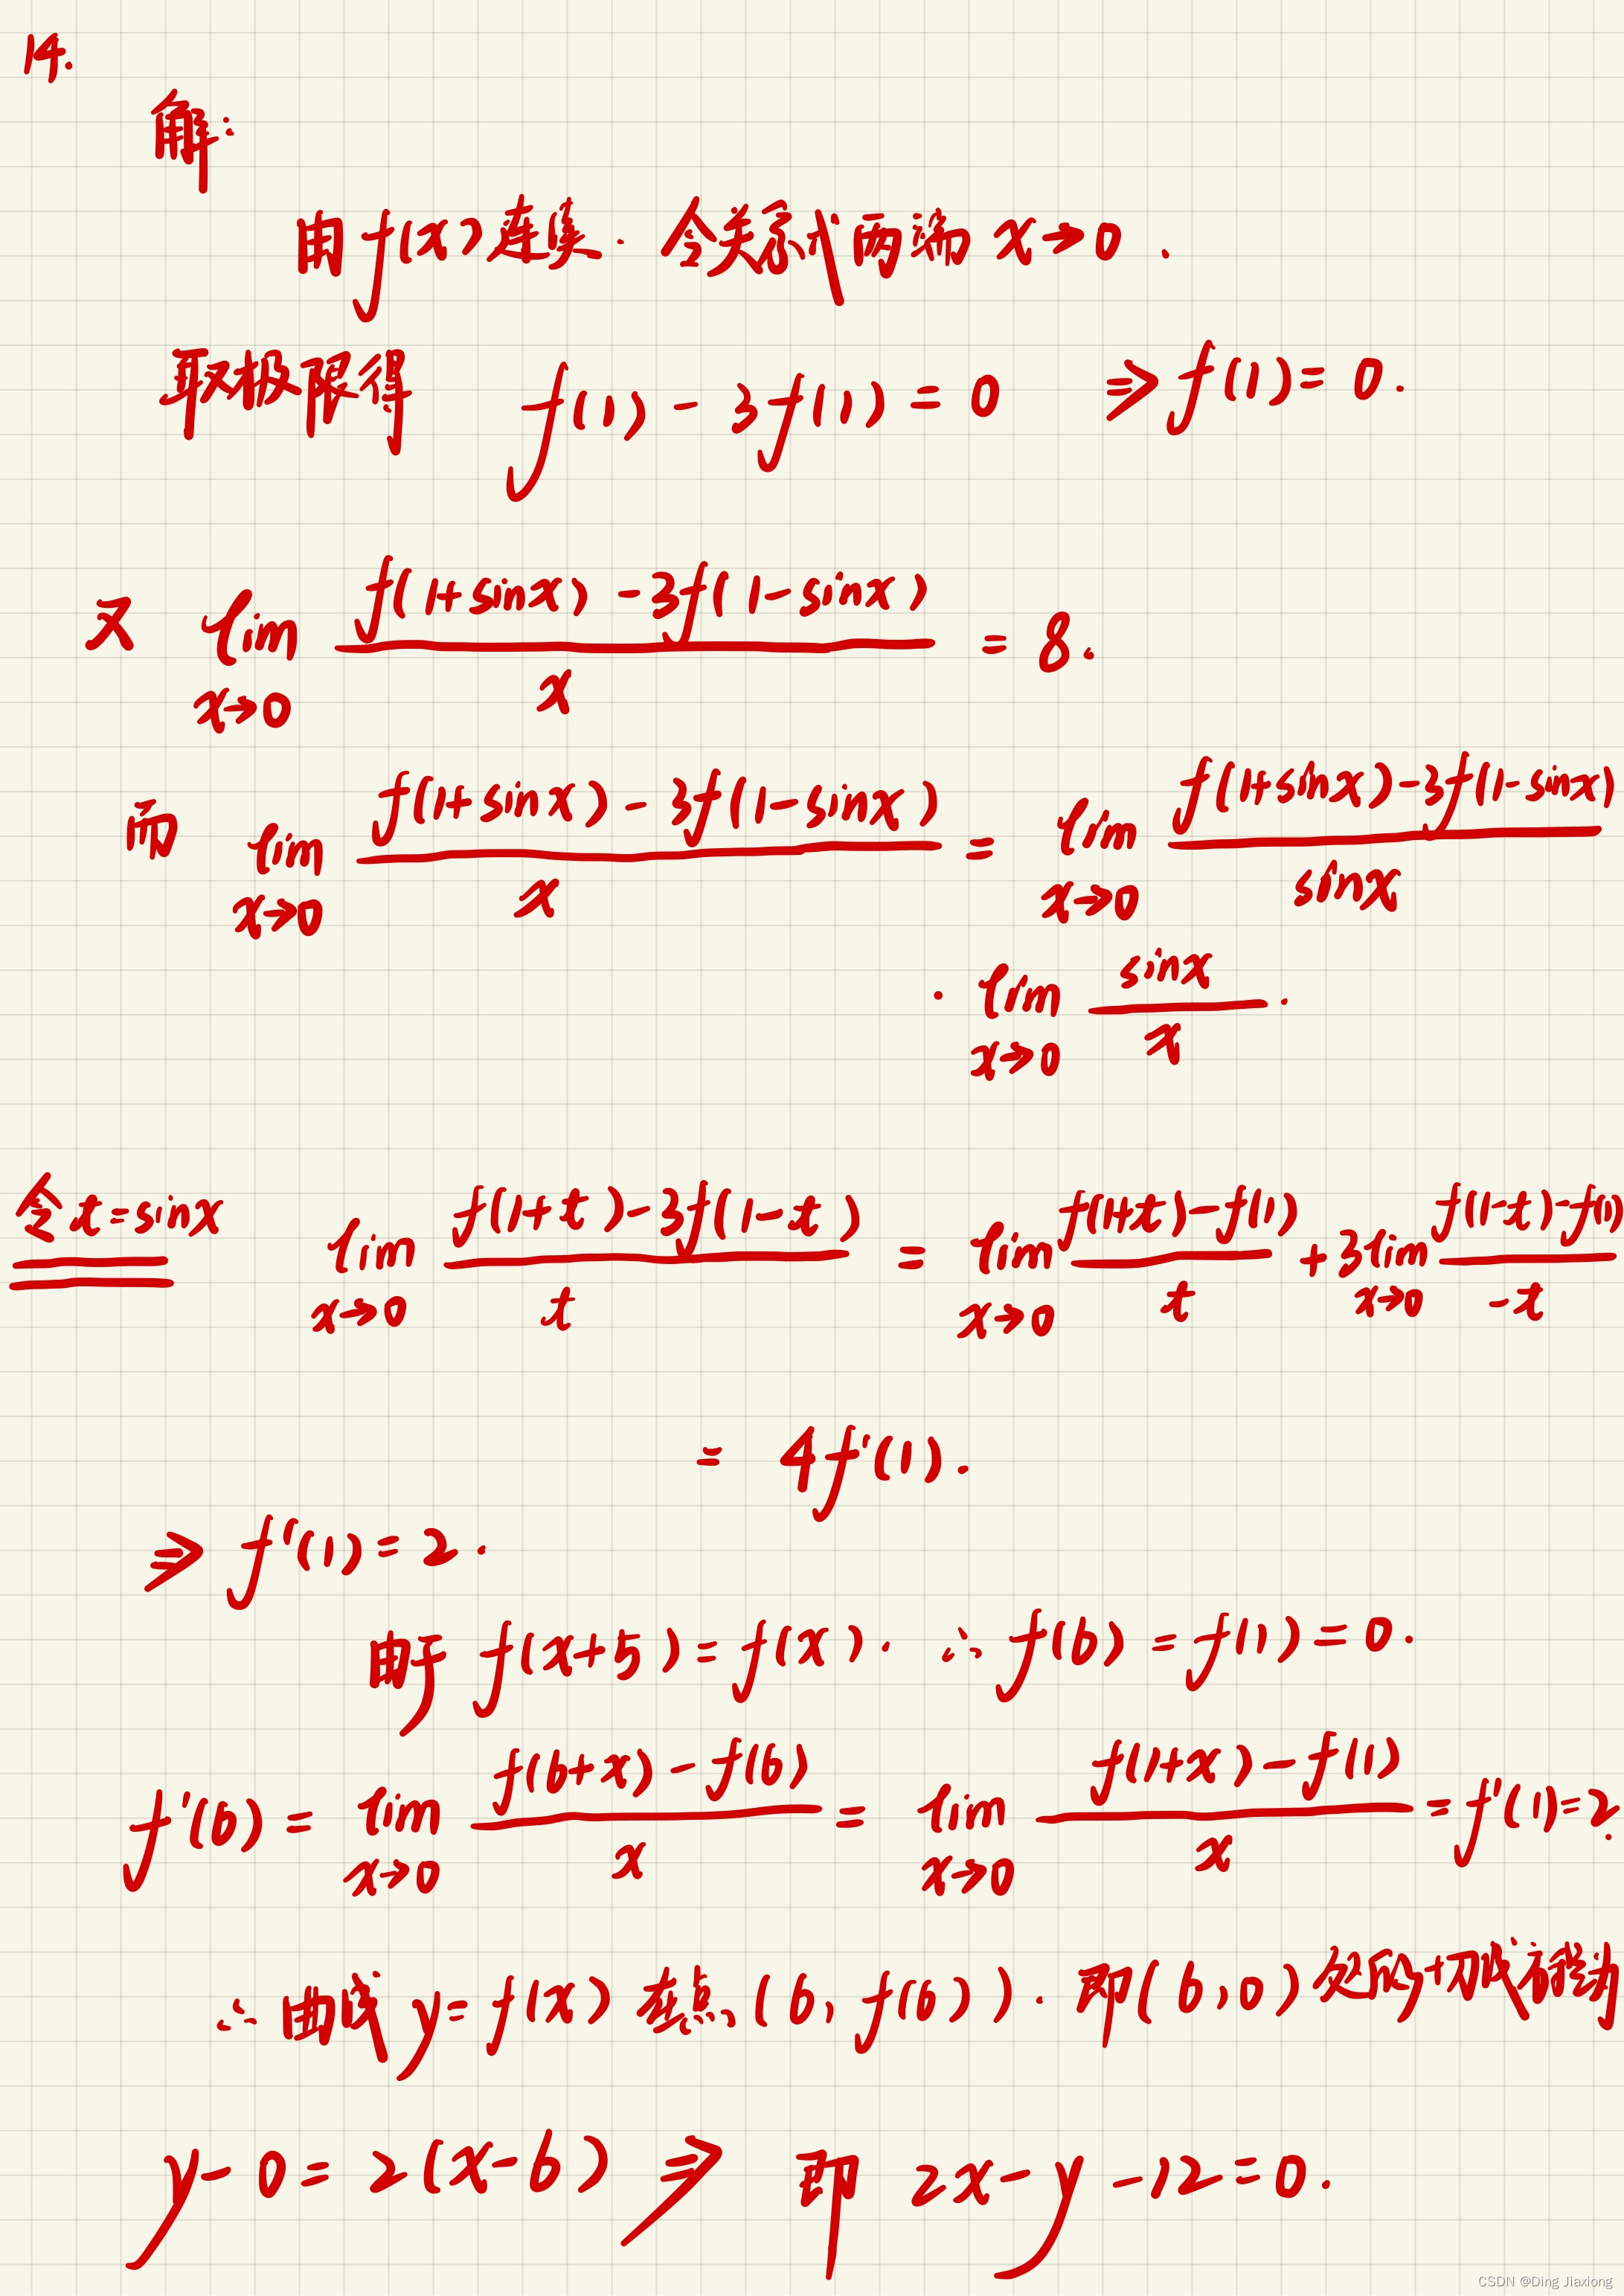 14.
解:
由f(x)连续. 令关系式两端 x→0.
取极限得 f(1)-3f(1)=0 ⇒f(1)=0.
又 lim x→0 f(1+sinx)-3f(1-sinx) / x = 8.
而 lim x→0 f(1+sinx)-3f(1-sinx) / x = lim x→0 f(1+sinx)-3f(1-sinx) / sinx
· lim x→0 sinx / x .
令t=sinx lim x→0 f(1+t)-3f(1-t) / t = lim x→0 f(1+t)-f(1) / t + 3lim x→0 f(1-t)-f(1) / -t
= 4f'(1).
⇒ f'(1)=2.
由于 f(x+5)=f(x). ∴ f(6)=f(1)=0.
f'(6)= lim x→0 f(6+x)-f(6) / x = lim x→0 f(1+x)-f(1) / x =f'(1)=2.
∴ 曲线 y=f(x) 在点 (6,f(6)). 即(6,0)处的切线方程为
y-0=2(x-6) ⇒ 即 2x-y-12=0.
CSDN @Ding Jiaxiong